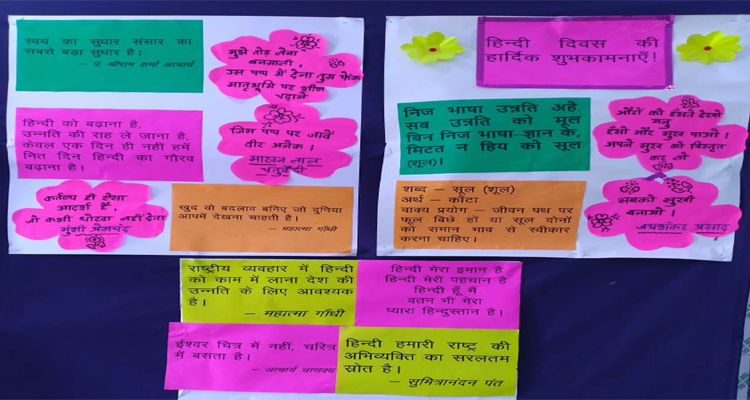 स्वयं का सुधार संसार का
सबसे बड़ा सुधार है।
– प. श्रीराम शर्मा आचार्य
मुझे तोड़ लेना
वनमाली,
उस पथ में देना तुम फेंक
मातृभूमि पर शीश
चढ़ाने
हिन्दी को बढ़ाना है,
उन्नति की राह ले जाना है,
केवल एक दिन ही नहीं हमें
नित दिन हिन्दी का गौरव
बढ़ाना है।
जिस पथ पर जावें
वीर अनेक।
माखन लाल
चतुर्वेदी
कर्तव्य ही ऐसा
आदर्श है,
जो कभी धोखा नहीं देता
मुंशी प्रेमचंद
खुद वो बदलाव बनिए जो दुनिया
आपमें देखना चाहती है।
– महात्मा गाँधी
हिन्दी दिवस की
हार्दिक शुभकामनाएँ!
निज भाषा उन्नति अहे,
सब उन्नति को मूल
बिन निज भाषा–ज्ञान के,
मिटत न हिय को सूल
(शूल)।
औरों को हँसते देखो
मनु
हँसी और सुख पाओ।
अपने सुख को विस्तृत
कर लो
शब्द – सूल (शूल)
अर्थ – काँटा
वाक्य प्रयोग – जीवन पथ पर
फूल बिछे हों या सूल दोनों
को समान भाव से स्वीकार
करना चाहिए।
सबको सुखी
बनाओ।
जयशंकर प्रसाद
राष्ट्रीय व्यवहार में हिन्दी
को काम में लाना देश की
उन्नति के लिए आवश्यक
है।
– महात्मा गाँधी
हिन्दी मेरा इमान है
हिन्दी मेरी पहचान है
हिन्दी हूँ मैं
वतन भी मेरा
प्यारा हिन्दुस्तान है।
ईश्वर चित्र में नहीं, चरित्र
में बसता है।
– आचार्य चाणक्य
हिन्दी हमारी राष्ट्र की
अभिव्यक्ति का सरलतम
स्रोत है।
– सुमित्रानंदन पंत